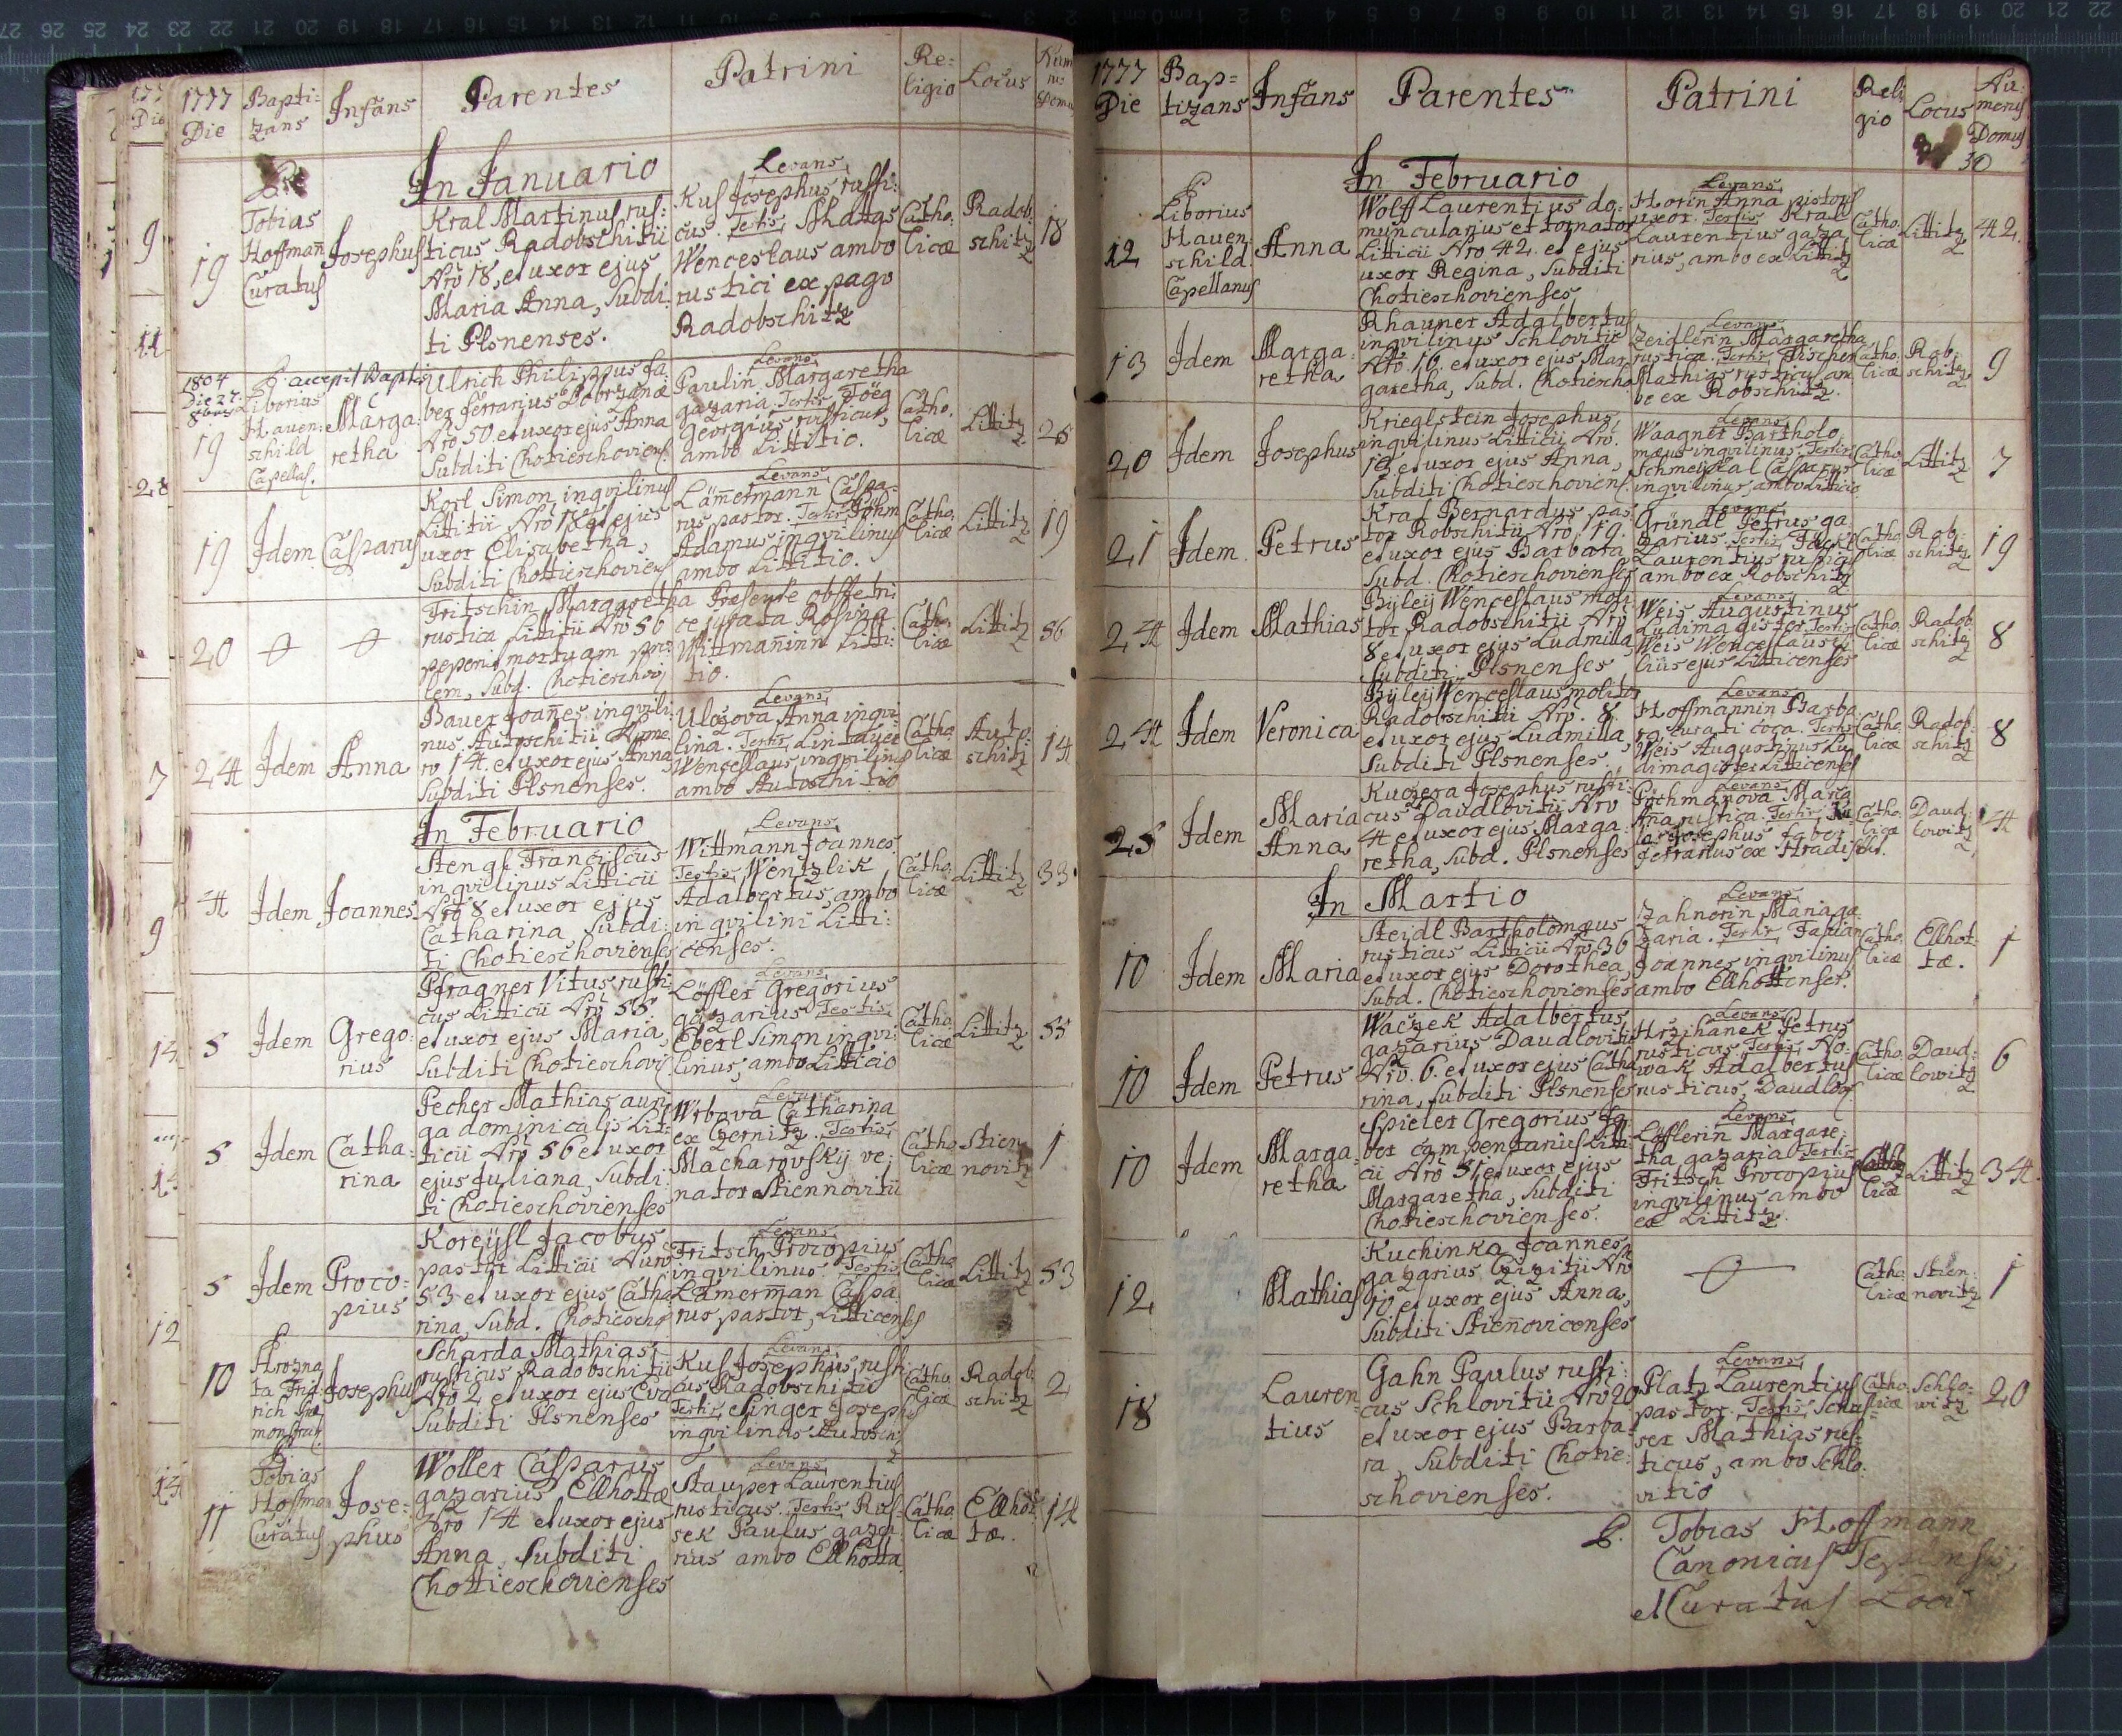 1777 Die
Bapti-
zans
Infans
Parentes
Patrini
Re-
ligio
Locus
In Januario
19
Tobias
Hoffmañ
Curatus
Josephus
Kral Martinus rus-
ticus Radobschitii
Nro 18, et uxor ejus
Maria Anna, Subdi-
ti Plsnenses.
Levans
Kus Josephus rusti-
cus. Testis
Wenceslaus ambo
rustici ex pago
Radobschitz
Catho-
licæ
Radob-
schitz
18
1804
Die 27.
accepit Bapt.
19
Liborius
Hauen-
schild
Capellas.
Marga-
retha
Ulrich Philippus fa-
ber ferrarius Dobrzanæ
Nro 50. et uxor ejus Anna
Subditi Chotieschoviens.
Levans
Paulin Margaretha
gazaria. Testis
Georgius rusticus,
ambo Littitio.
Catho-
licæ
Littitz
19
Idem
Casparus
Korl Simon inqvilinus
Littitii Nro et ejus
uxor Elisabetha,
Subditi Chotieschoviens
Levans
Lam̃ermann Caspa-
rus pastor. Testis Böhm
Adamus inqvilinus
ambo Littitio.
Catho-
licæ
Littitz
19
20
Fritschin Margaretha
rustica Littitii Nro 56
peperit mortuam pro-
lem, Subd. Chotieschovi
Præsente obstetri-
ce jurata Rosina
Wittmañinn Litti-
tio.
Catho-
licæ
Littitz
56
24
Idem
Anna
Bauer Joañes, inqvili-
nus Autoschitii Nume-
ro 14. et uxor ejus Anna
Subditi Plsnenses.
Levans
Anna inqvi-
lina. Testis
Wenceslaus inqvilinus
ambo Autoschitio
Catho-
licæ
Auto-
schitz
14
In Februario
4
Idem
Joannes
Stengl Franciscus
inqvilinus Litticii
Nro 8 et uxor ejus
Catharina Subdi-
ti Chotieschovienses
Levans
Wittmann Joannes.
Testis Wentzlik
Adalbertus, ambo
inqvilini Litti-
censes.
Catho-
licæ
Littitz
33
5
Idem
Grego-
rius
Pfragner Vitus rusti-
cus Litticii Nro 55
et uxor ejus Maria,
Subditi Chotieschovi
Levans
Löffler Gregorius
gazarius Testis
Eberl Simon inqvi-
linus, ambo Litticio
Catho-
licæ
Littitz
55
5
Idem
Catha-
rina
Pecher Mathias auri-
ga dominicalis Lit-
ticii Nro 56 et uxor
ejus Juliana, Subdi-
ti Chotieschovienses
Levans
Wrbava Catharina
ex Czernitz. Testis
Macharovskÿ ve-
nator Stiennovitii
Catho-
licæ
Stien-
novitz
1
5
Idem
Proco-
pius
Koreÿsl Jacobus
pastor Litticii Nuro
53 et uxor ejus Catha
rina, Subd. Chotiescho
Levans
Fritsch Procopius
inqvilinus. Testis
Lamerman Caspa-
rus pastor, Litticenses
Catho-
licæ
Littitz
53
10
Hrozna-
ta Frid-
rich Præ-
monstrat.
Josephus
Scharda Mathias
rusticus Radobschitii
Nro 2 et uxor ejus Eva
Subditi Plsnenses
Levans
Kus Josephus rusti-
cus Radobschitii
Testis Singer Joseph
inqvilinus
Catho-
licæ
Radob-
schitz
2
11
Tobias
Hoffman
Curatus
Jose-
phus
Woller Casparus
gazarius Ellhotta
Nro 14 et uxor ejus
Anna Subditi
Chottieschovienses
Levans
Stauper Laurentius
rusticus. Testis Rus-
sek Paulus gaza-
rius ambo Ellhotta.
Catho-
licæ
Ellhot-
tæ.
14
1777
Die
Bap-
tizans
Infans
Parentes
Patrini
Reli
gio
Locus
Nu-
merus
Domus
30
In Februario
12
P
Liborius
Hauen-
schild
Capellanus
Anna
Wolff Laurentius do-
muncularius et tornator
Litticii Nro 42. et ejus
uxor Regina, Subditi
Chotieschovienses
Levans
Horin Anna pistoris
uxor. Testis Kral
Laurentius gaza-
rius, ambo ex Littitz
Catho-
licæ
Littitz
42.
13
Idem
Marga-
retha
Rhauner Adalbertus
inqvilinus Schlovitii
Nro. 16. et uxor ejus Mar-
garetha, Subd. Chotiescho
Levans
Zeidlerin Margaretha
rustica. Testis Fischer
Mathias rusticus am-
bo ex Robschitz.
Catho-
licæ
Rob-
schitz
9
20
Idem
Josephus
Krieglstein Josephus
inqvilinus Litticii Nro.
et uxor ejus Anna,
Subditi Chotieschoviens.
Levans
Waagner Bartholo
mæus inqvilinus. Testis
Schmeÿkal Casparus
inqvilinus, ambo Litticio
Catho
licæ
Littitz
7
21
Idem
Petrus
Kral Bernardus pas-
tor Robschitii Nro. 19.
et uxor ejus Barbara
Subd. Chotieschovienses
Levans
Gründl Petrus ga-
zarius. Testis
Laurentius rusticus
ambo ex Robschitz
Catho
licæ
Rob-
schitz
19
24
Idem
Mathias
Bÿleÿ Wenceslaus moli-
tor Radobschitii Nro
8 et uxor ejus Ludmilla
Subditi Plsnenses
Levans
Weis Augustinus
Ludimagister. Testis
Weis Wenceslaus fi-
lius ejus Litticenses
Catho
licæ
Radob-
schitz
8
24
Idem
Veronica
Bÿleÿ Wenceslaus molitor
Radobschitii Nro. 8.
et uxor ejus Ludmilla
Subditi Plsnenses.
Levans
Hoffmannin Barba
ra, Curati coca. Testis
Weis Augustinus Lu
dimagister Litticenses
Catho
licæ
Radob-
schitz
8
25
Idem
Maria
Anna
Kuczera Josephus rusti-
cus Daudlovitii Nro
4 et uxor ejus Marga-
retha, Subd. Plsnenses
Levans
Pöchmanova Maria
Añа rustica. Testis
Josephus faber
ferrarius ex Hradischt.
Catho-
licæ
Daud-
lowitz
4
In Martio
10
Idem
Maria
Steidl Bartholomæus
rusticus Litticii Nro. 36
et uxor ejus Dorothea,
Subd. Chotieschovienses
Levans
Zahnorin Maria ga-
zaria. Testis Fabian
Joannes inqvilinus
ambo Ellhottenses.
Catho-
licæ
Ellhot-
tæ.
1
10
Idem
Petrus
Waczek Adalbertus
gazarius Daudlovitii
Nro. 6. et uxor ejus Catha
rina, Subditi Plsnenses
Levans
Hrzihanek Petrus
rusticus. Testis No-
wak Adalbertus
rusticus, Daudlov.
Catho-
licæ
Daud-
lowitz
6
10
Idem
Marga-
retha
Spieler Gregorius fa-
ber carpentarius Litti-
cii Nro 51, et uxor ejus
Margaretha, Subditi
Chotieschovienses.
Levans
Löfflerin Margare-
tha gazaria Testis
Fritsch Procopius
inqvilinus ambo
ex Littitz.
Catho
licæ
Littitz
34.
12
Mathias
Kuchinka Joannes,
gazarius Czizitii Nro
10 et uxor ejus Anna,
Subditi Stieñovicenses
Catho-
licæ
Stien-
novitz
1
18
Lauren-
tius
Gahn Paulus rusti-
cus Schlovitii Nro 20
et uxor ejus Barba-
ra, Subditi Chotie-
schovienses.
Levans
Platz Laurentius
pastor. Testis Schus-
ser Mathias rus-
ticus, ambo Schlo-
vitio
Catho-
licæ
Schlo-
witz
20
P. Tobias Hoffmann
Canonicus Teplensis,
et Curatus Loci